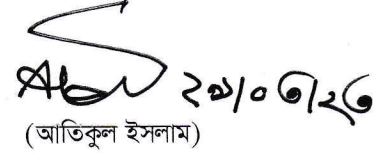 ২৯/০৩/২৩
(আতিকুল ইসলাম)